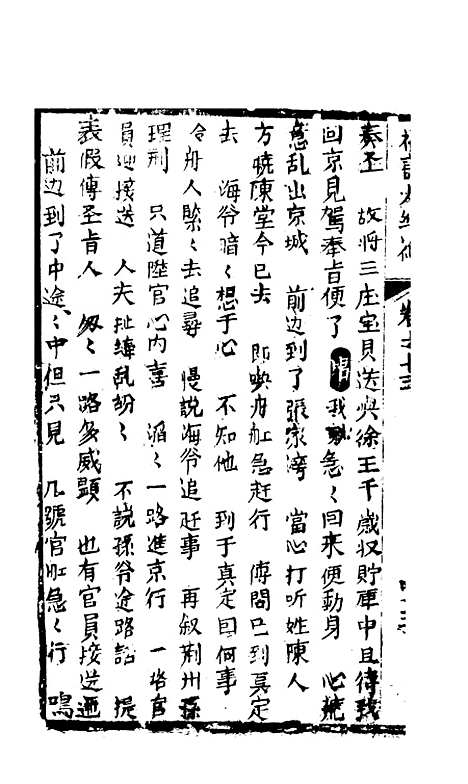 卷之十三
奏丕　故将三庄宝貝送与徐王千歲収貯庫中且待我
回京見駕奉旨便了　唱　我急〻回来便動身　心慌
意乱出京城　前边到了張家湾　當心打听姓陳人
方曉陳堂今已去　即喚舟舡急赶行　傳問已到真定
去　海爷暗〻想于心　不知他　到于真定曰何事
令舟人緊〻去追尋　慢説海爷追赶事　再叙荆州孫
理刑　只道陞官心内喜　滔〻一路進京行　一路官
員迎接送　人夫扯縴乱紛〻　不説孫爷途路話　提
表假傳圣旨人　匆〻一路多威顕　也有官員接送迊
前边到了中途〻中但只見　几號官舡急〻行　鳴